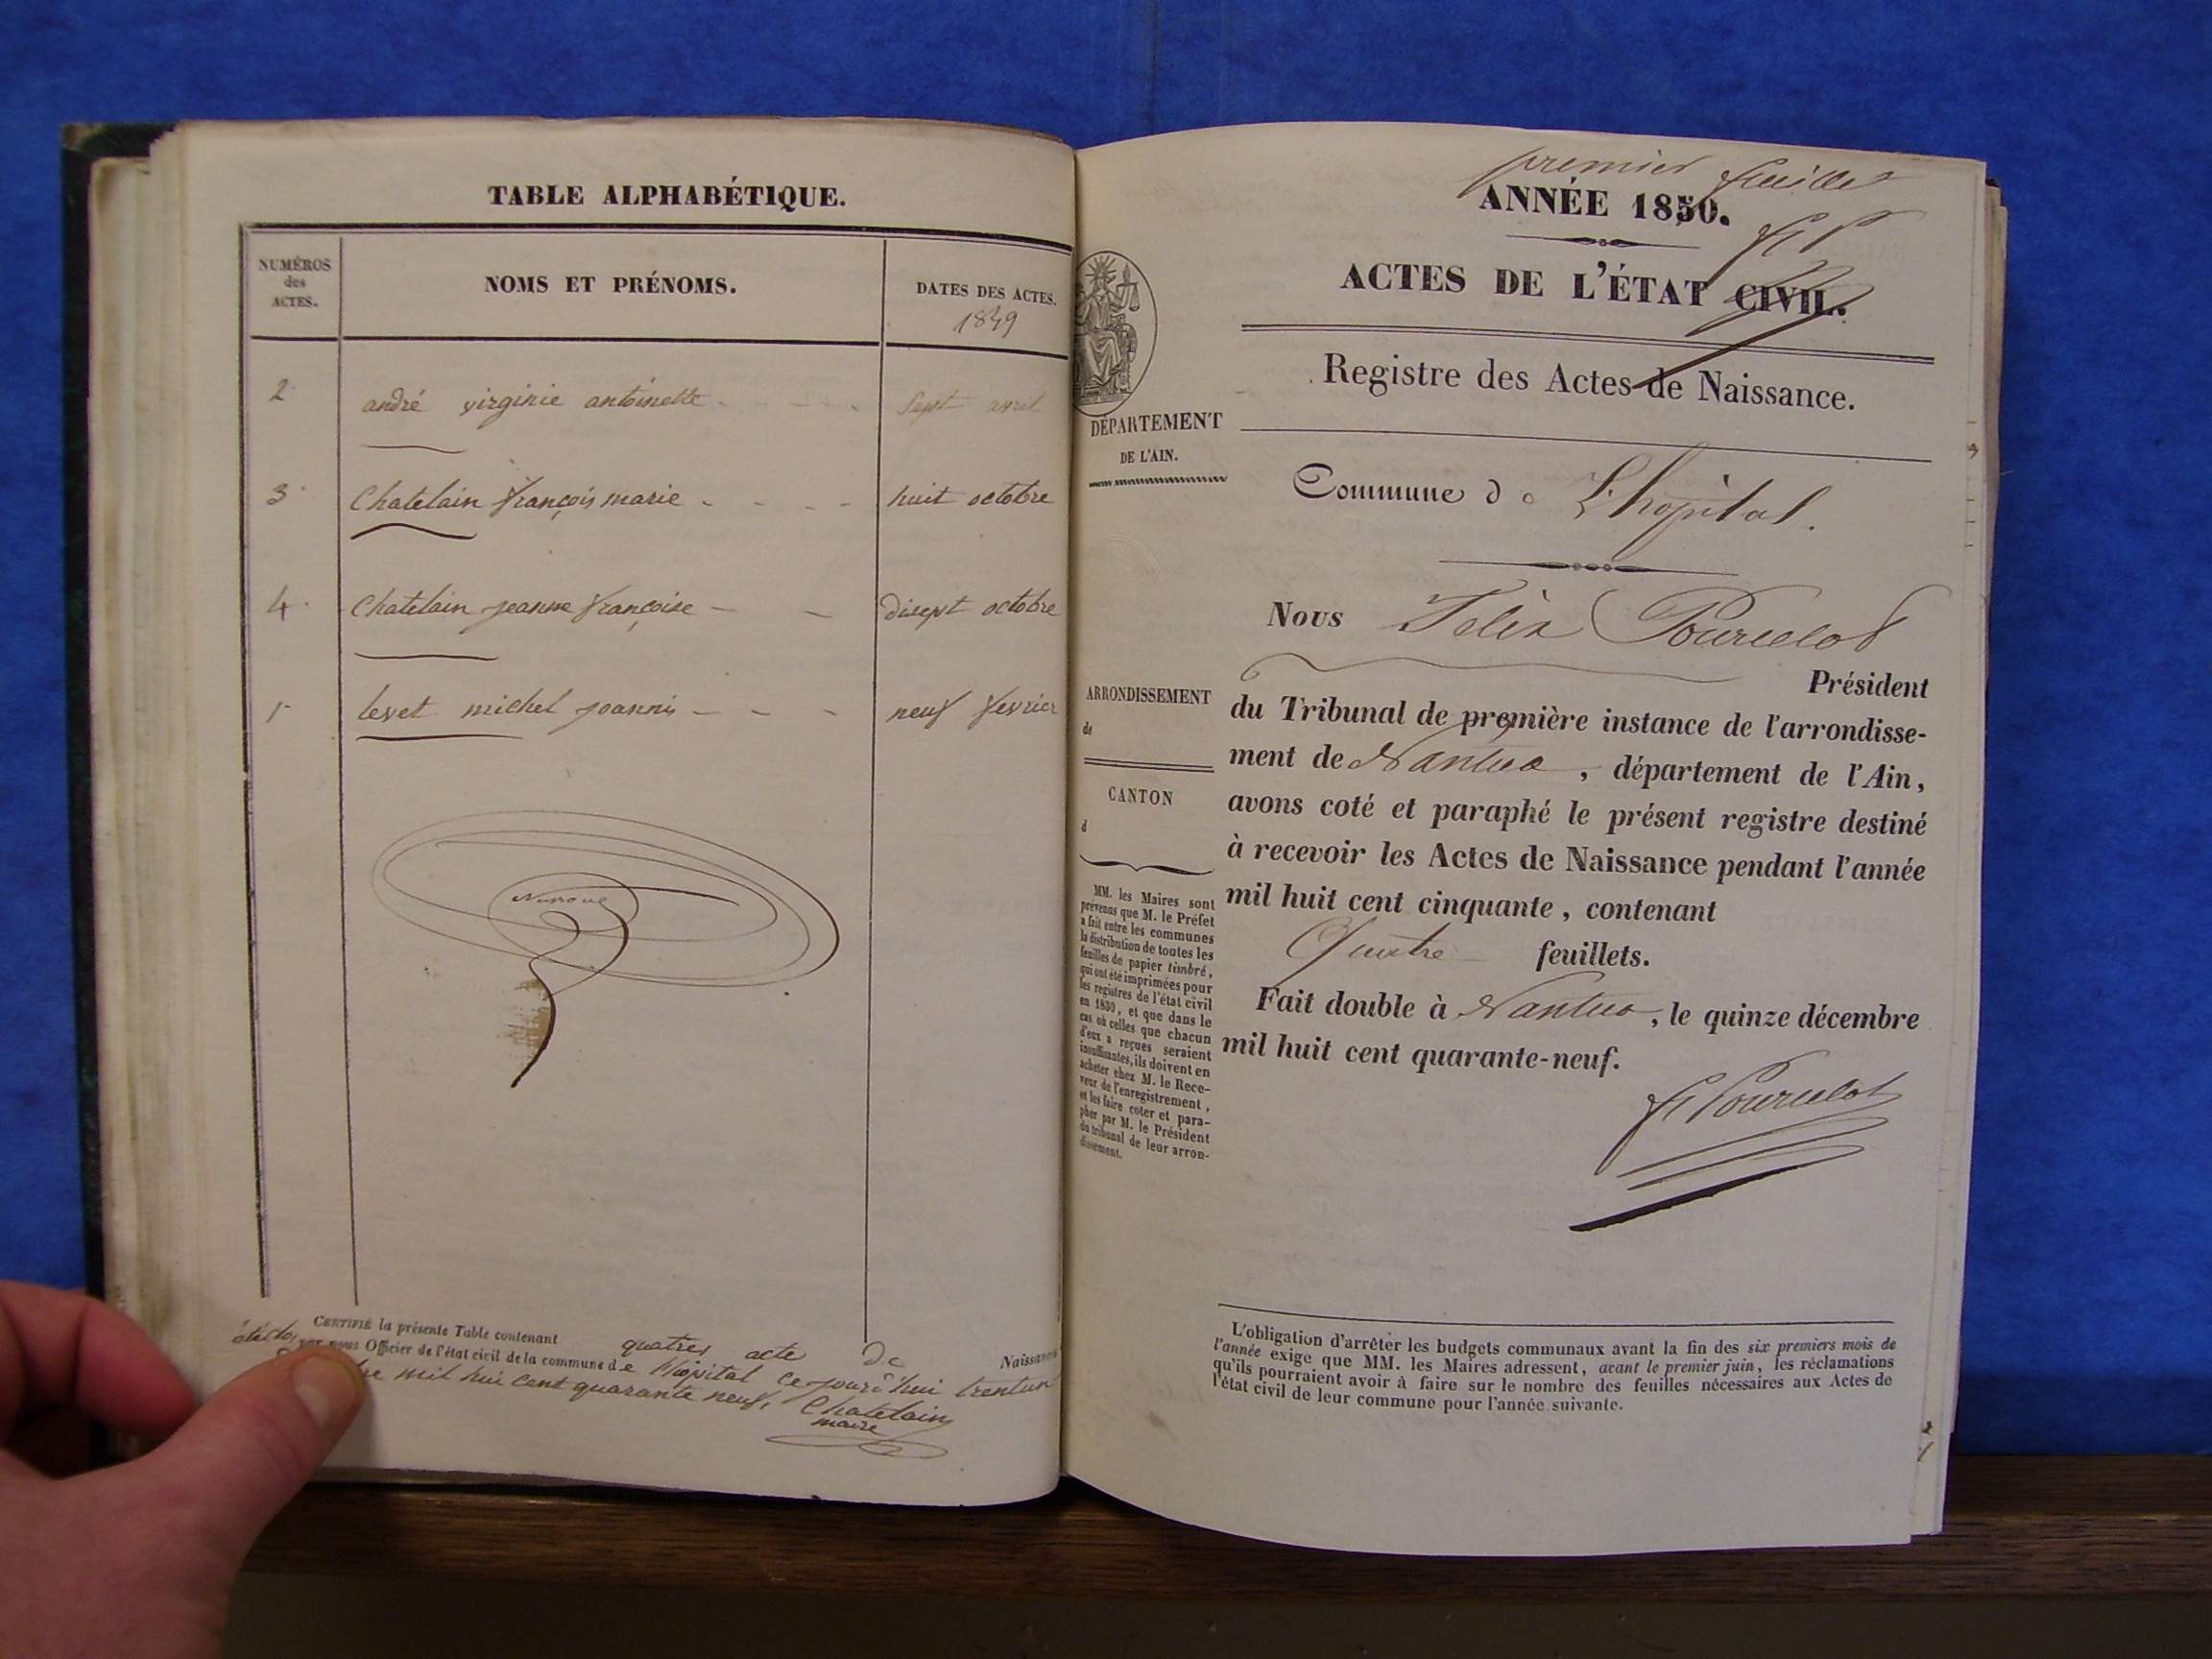 TABLE ALPHABÉTIQUE.
NUMÉROS
des
ACTES.
NOMS ET PRÉNOMS.
DATES DES ACTES.
1849
2 andré virginie antoinette sept avril
3 Chatelain françois marie huit octobre
4 Chatelain jeanne françoise disept octobre
1 levet michel joannis neuf fevrier
CERTIFIÉ la présente Table contenant quatres acte de Naissance
par nous Officier de l'état civil de la commune de l'hôpital ce jourd'hui trentun
mil hui cent quarante neuf,
Chatelain
maire
premier feuillet
ANNÉE 1850.
ACTES DE L'ÉTAT CIVIL.
Registre des Actes de Naissance.
DÉPARTEMENT
DE L'AIN.
Commune de L'hôpital.
Nous Félix Pourcelot
Président
ARRONDISSEMENT
de
CANTON
d
du Tribunal de première instance de l'arrondisse-
ment de Nantua, département de l'Ain,
avons coté et paraphé le présent registre destiné
à recevoir les Actes de Naissance pendant l'année
mil huit cent cinquante, contenant
Quatre feuillets.
Fait double à Nantua, le quinze décembre
mil huit cent quarante-neuf.
f. Pourcelot
MM. les Maires sont
prévenus que M. le Préfet
a fait entre les communes
la distribution de toutes les
feuilles de papier timbré,
qui ont été imprimées pour
les registres de l'état civil
en 1850, et que dans le
cas où celles que chacun
d'eux a reçues seraient
insuffisantes, ils doivent en
acheter chez M. le Rece-
veur de l'enregistrement,
et les faire coter et para-
pher par M. le Président
du tribunal de leur arron-
dissement.
L'obligation d'arrêter les budgets communaux avant la fin des six premiers mois de
l'année exige que MM. les Maires adressent, avant le premier juin, les réclamations
qu'ils pourraient avoir à faire sur le nombre des feuilles nécessaires aux Actes de
l'état civil de leur commune pour l'année suivante.